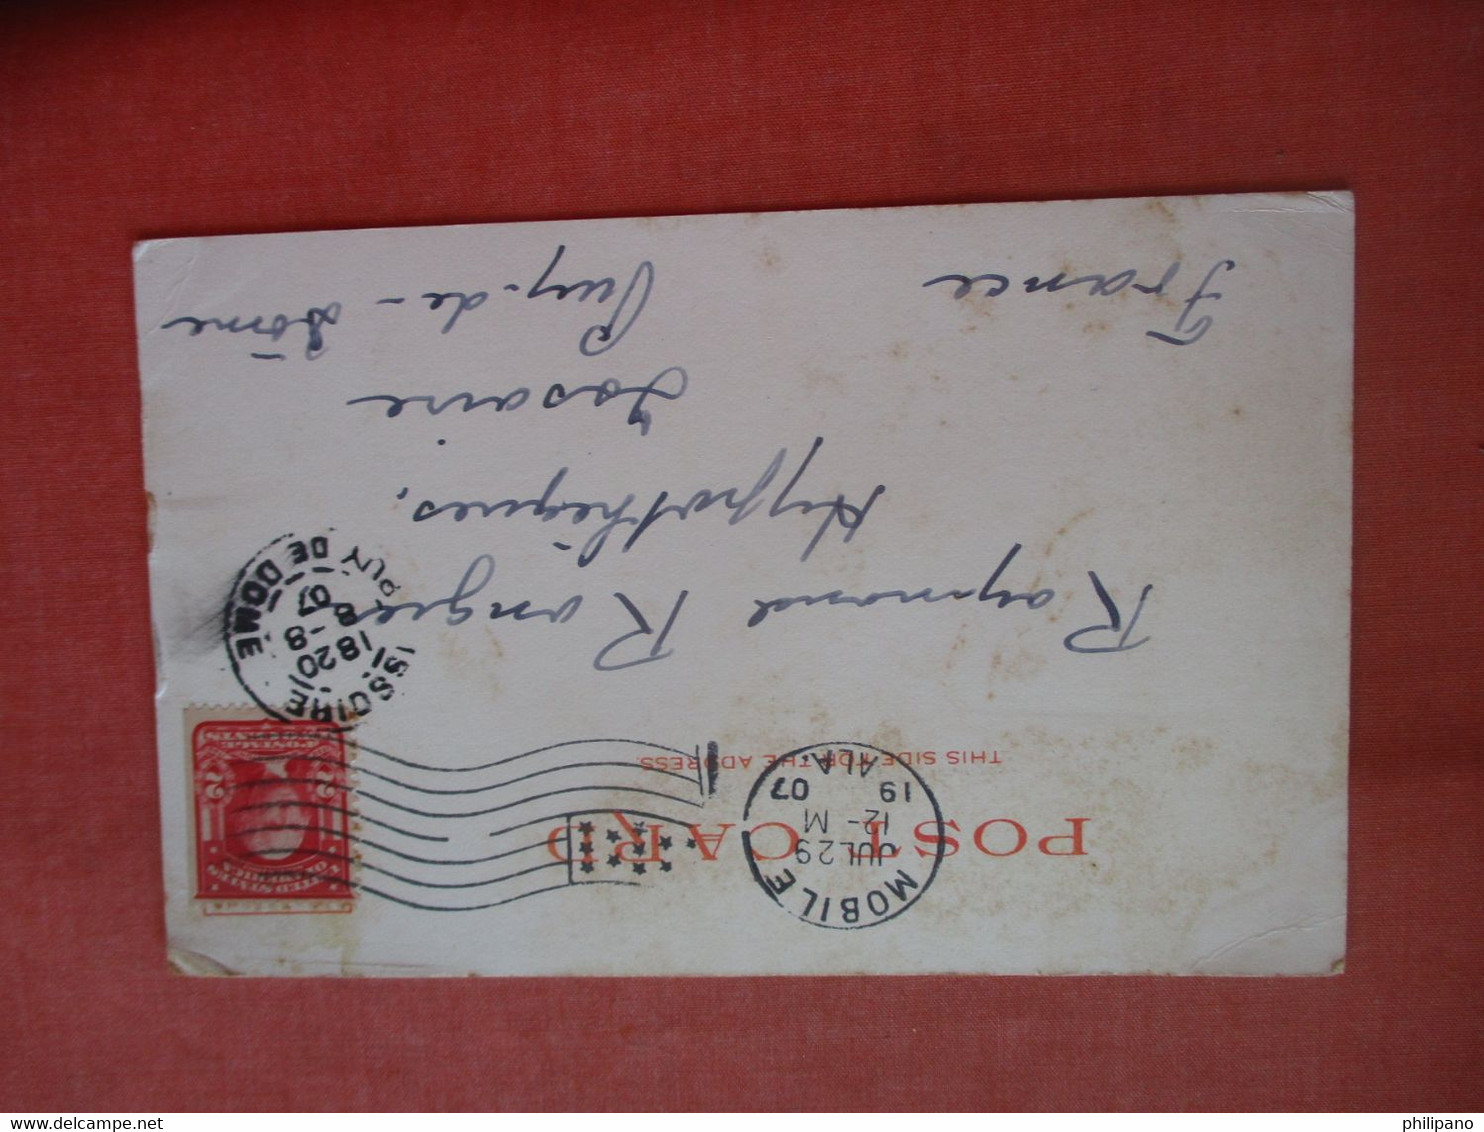 POST CARD
THIS SIDE FOR THE ADDRESS.
MOBILE
JUL 29
12-M
19 07
ALA.
UNITED STATES OF AMERICA
2 2
POSTAGE
ISSOIRE
18 20
8 -8
07
PUY DE DOME
Raymond
Hypothèques.
Puy-de-Dôme
France
philipano